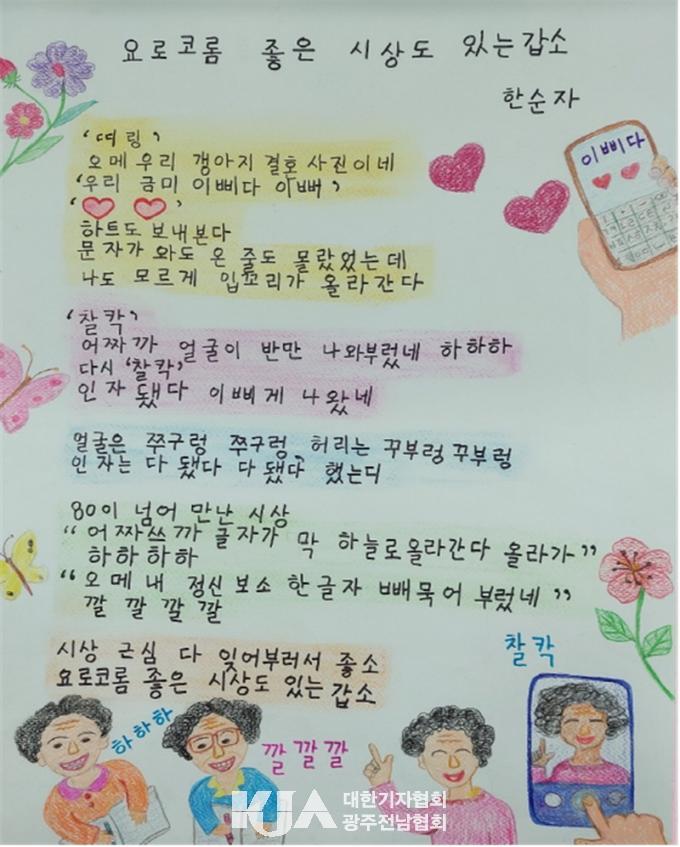 요로코롬 좋은 시상도 있는갑소
한순자
‘띠링’
오메 우리 갱아지 결혼사진이네
‘우리 금미 이삐다 이뻐’
하트도 보내본다
문자가 와도 온 줄도 몰랐었는데
나도 모르게 입꼬리가 올라간다
이삐다
‘찰칵’
어짜까 얼굴이 반만 나와부렀네 하하하
다시 ‘찰칵’
인자 됐다 이삐게 나왔네
얼굴은 쭈구렁 쭈구렁, 허리는 꾸부렁 꾸부렁
인자는 다 됐다 다 됐다 했는디
80이 넘어 만난 시상
“어짜쓰까 글자가 막 하늘로올라간다 올라가”
하하하하
“오메 내 정신보소 한글자 빼묵어 부렀네”
깔 깔 깔 깔
시상 근심 다 잊어부러서 좋소
요로코롬 좋은 시상도 있는갑소
하하하
깔깔깔
찰칵
KJA 대한기자협회
광주전남협회